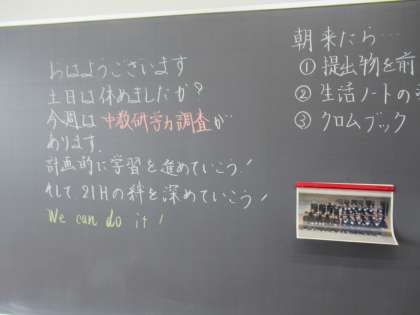 おはようございます
土日は休めましたか?
今週は中教研学力調査が
あります.
計画的に学習を進めていこう!
そして21Hの絆を深めていこう!
We can do it!
朝来たら…
① 提出物を前
② 生活ノートの
③ クロムブック